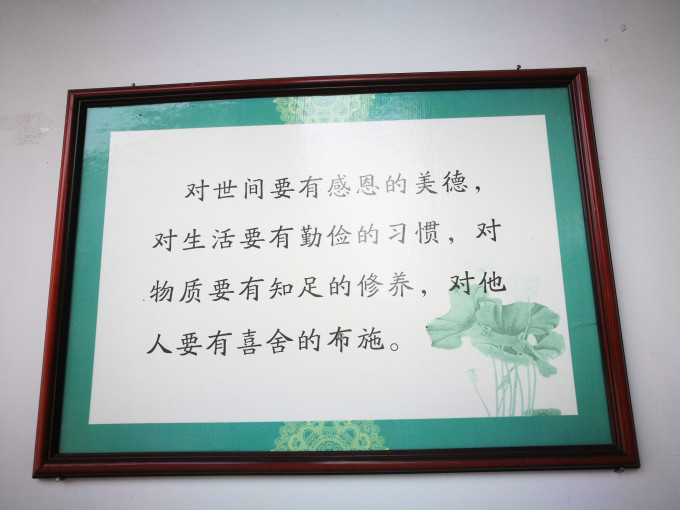 对世间要有感恩的美德，
对生活要有勤俭的习惯，对
物质要有知足的修养，对他
人要有喜舍的布施。